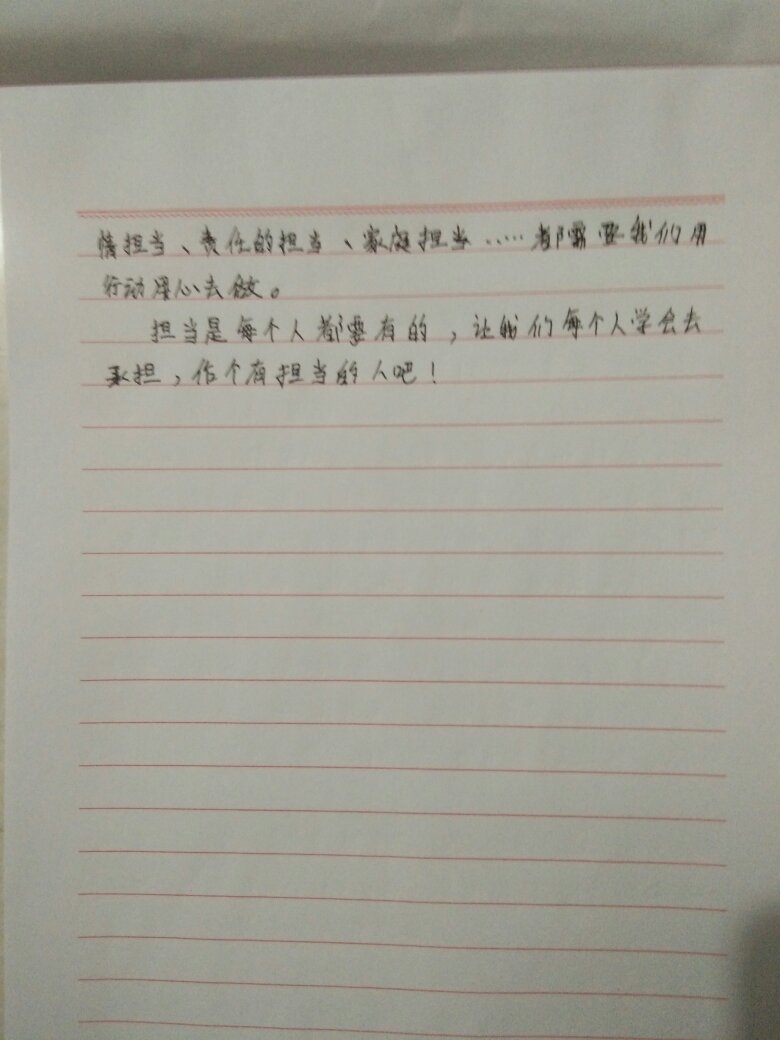 情担当、责任的担当、家庭担当……都需要我们用
行动用心去做。
担当是每个人都要有的，让我们每个人学会去
承担，作个有担当的人吧！